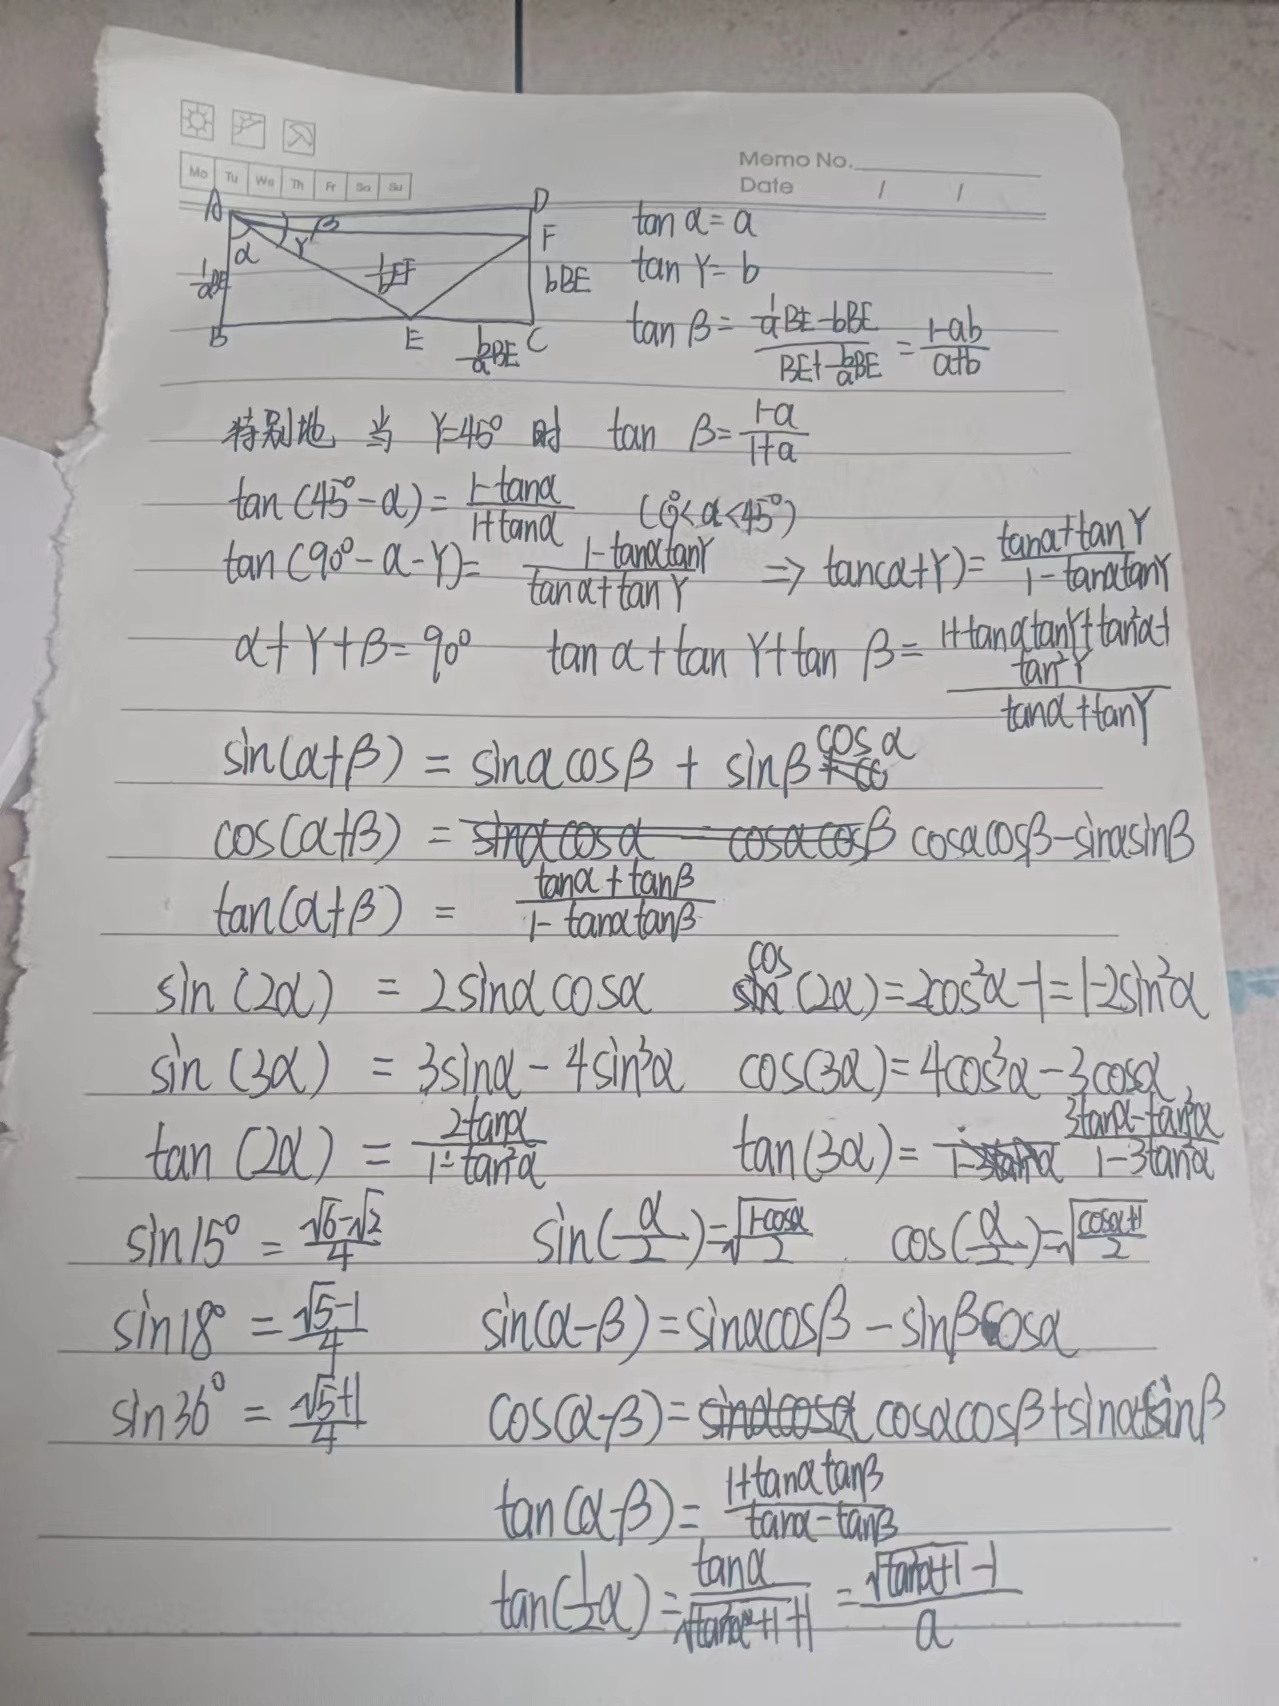 Memo No.
Mo Tu We Th Fr Sa Su
Date / /
A D
F
B E C
α γ β
1/a BE
1/b EF
bBE
b/a BE
tan α = a
tan γ = b
tan β = (1/a BE - bBE)/(BE + b/a BE) = (1-ab)/(a+b)
特别地 当 γ=45° 时 tan β = (1-a)/(1+a)
tan(45°-α) = (1-tanα)/(1+tanα) (0°<α<45°)
tan(90°-α-γ) = (1-tanαtanγ)/(tanα+tanγ) ⇒ tan(α+γ) = (tanα+tanγ)/(1-tanαtanγ)
α+γ+β=90° tan α + tan γ + tan β = (1+tanαtanγ+tan²α+tan²γ)/(tanα+tanγ)
sin(α+β) = sinαcosβ + sinβcosα
cos(α+β) = cosαcosβ-sinαsinβ
tan(α+β) = (tanα+tanβ)/(1-tanαtanβ)
sin(2α) = 2sinαcosα cos(2α)=2cos²α-1=1-2sin²α
sin(3α) = 3sinα-4sin³α cos(3α)=4cos³α-3cosα
tan(2α) = 2tanα/(1-tan²α) tan(3α) = (3tanα-tan³α)/(1-3tan²α)
sin15° = (√6-√2)/4 sin(α/2)=√((1-cosα)/2) cos(α/2)=√((cosα+1)/2)
sin18° = (√5-1)/4 sin(α-β)=sinαcosβ-sinβcosα
sin36° = (√5+1)/4 cos(α-β)=cosαcosβ+sinαsinβ
tan(α-β) = (1+tanαtanβ)/(tanα-tanβ)
tan(1/2 α) = tanα/(√(tan²α+1)+1) = (√(tan²α+1)-1)/a